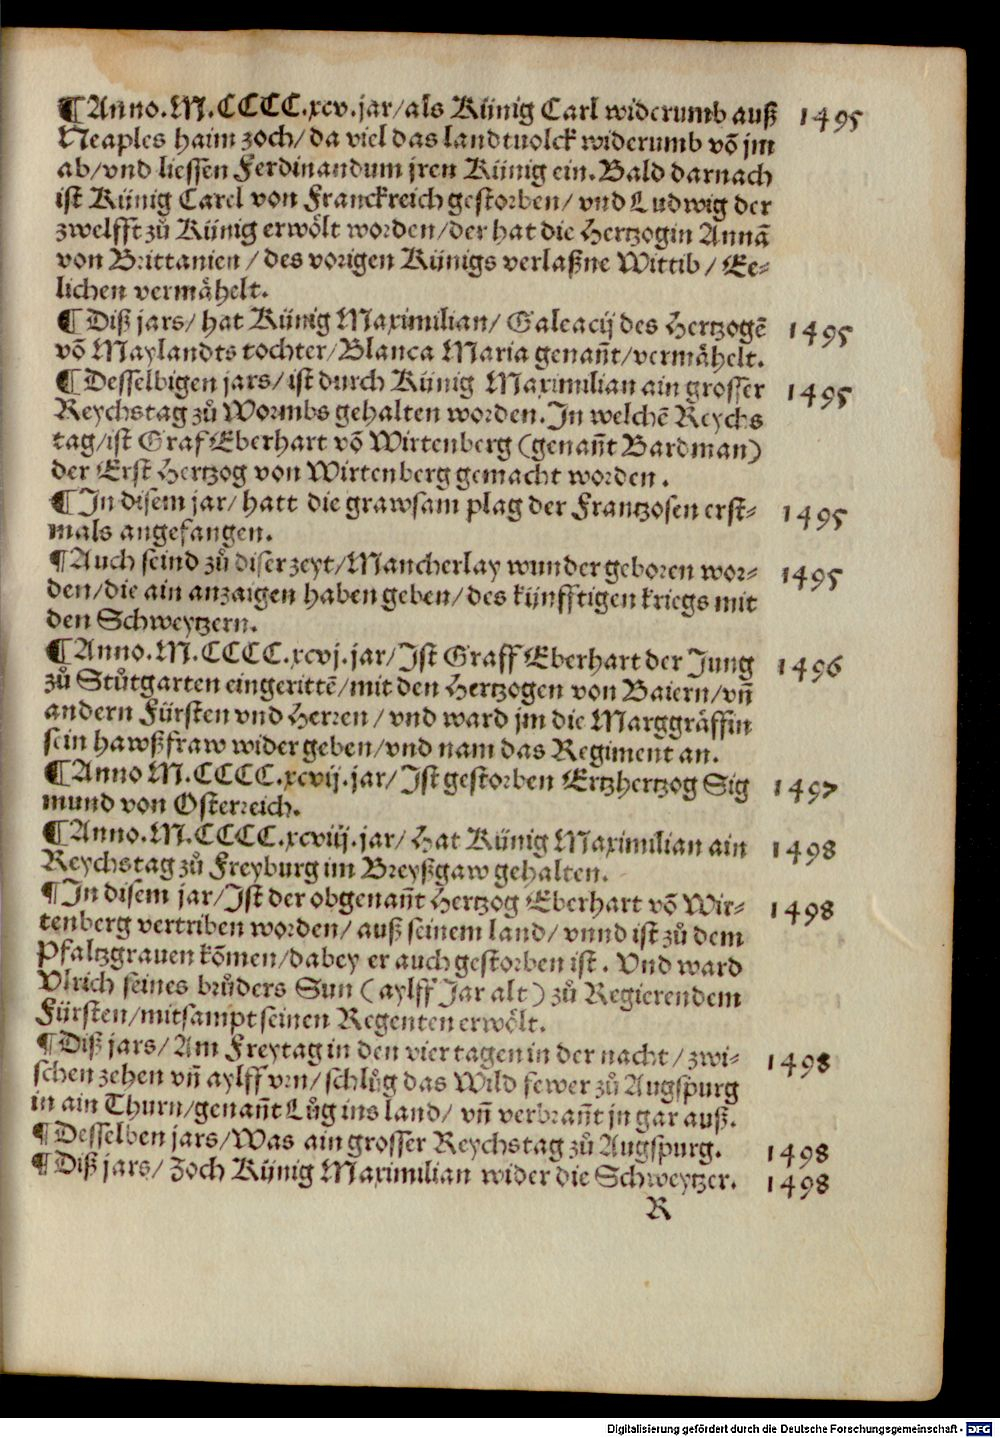 ¶ Anno. M. CCCC. xcv. jar/ als Künig Carl widerumb auß 1495
Neaples haim zoch/ da viel das landtuolck widerumb võ jm
ab/ vnd liessen Ferdinandum jren Künig ein. Bald darnach
ist Künig Carel von Franckreich gestorben/ vnd Ludwig der
zwelfft zů Künig erwoͤlt worden/ der hat die Hertzogin Annã
von Brittanien/ des vorigen Künigs verlaßne Wittib/ Ee⸗
lichen vermaͤhelt.
¶ Diß jars/ hat Künig Maximilian/ Galeacij des Hertzogẽ 1495
võ Maylandts tochter/ Blanca Maria genañt/ vermaͤhelt.
¶ Desselbigen jars/ ist durch Künig Maximilian ain grosser 1495
Reychstag zů Wormbs gehalten worden. In welchẽ Reychs
tag/ ist Graf Eberhart võ Wirtenberg (genañt Bardman)
der Erst Hertzog von Wirtenberg gemacht worden.
¶ In disem jar/ hatt die grawsam plag der Frantzosen erst⸗ 1495
mals angefangen.
¶ Auch seind zů diser zeyt/ Mancherlay wunder geboren wor⸗ 1495
den/ die ain anzaigen haben geben/ des künfftigen kriegs mit
den Schweytzern.
¶ Anno. M. CCCC. xcvj. jar/ Ist Graff Eberhart der Jung 1496
zů Stůtgarten eingerittẽ/ mit den Hertzogen von Baiern/ vñ
andern Fürsten vnd Herren/ vnd ward jm die Marggraͤffin
sein hawßfraw wider geben/ vnd nam das Regiment an.
¶ Anno M. CCCC. xcvij. jar/ Ist gestorben Ertzhertzog Sig 1497
mund von Osterreich.
¶ Anno. M. CCCC. xcviij. jar/ Hat Künig Maximilian ain 1498
Reychstag zů Freyburg im Breyßgaw gehalten.
¶ In disem jar/ Ist der obgenañt Hertzog Eberhart võ Wir⸗ 1498
tenberg vertriben worden/ auß seinem land/ vnnd ist zů dem
Pfaltzgrauen kõmen/ dabey er auch gestorben ist. Vnd ward
Vlrich seines brůders Sun (aylff Jar alt) zů Regierendem
Fürsten/ mitsampt seinen Regenten erwoͤlt.
¶ Diß jars/ Am Freytag in den vier tagen in der nacht/ zwi⸗ 1498
schen zehen vñ aylff vrn/ schlůg das Wild fewer zů Augspurg
in ain Thurn/ genañt Lůg ins land/ vñ verbrañt jn gar auß.
¶ Desselben jars/ Was ain grosser Reychstag zů Augspurg. 1498
¶ Diß jars/ Zoch Künig Maximilian wider die Schweytzer. 1498
R
Digitalisierung gefördert durch die Deutsche Forschungsgemeinschaft - DFG